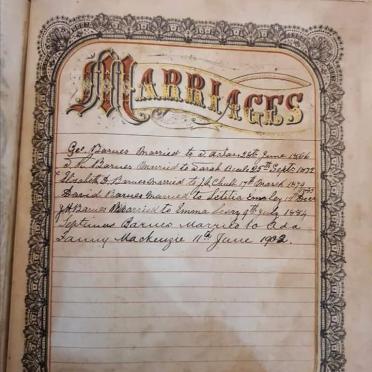 MARRIAGES
Geo Barnes Married to 26th June 1866
Barnes Married to Sarah 25th Sept 1872
Elizabeth D. Barnes Married to J. Chubb 17th March 1879
David Barnes Married to Letitia 19th
J H Barnes Married to Emma 9th July 1884
Septimus Barnes Married to Ada
Fanny Mackenzie 11th June 1902.